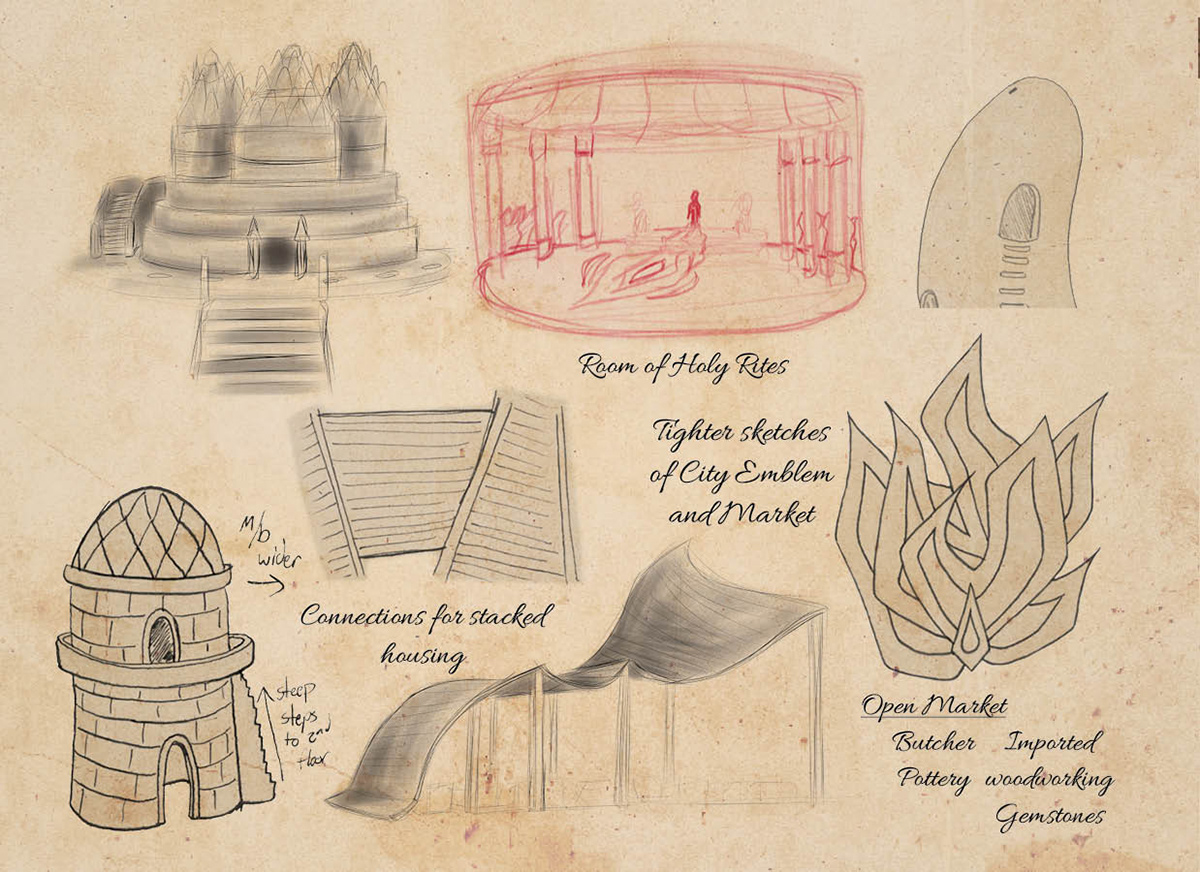 Room of Holy Rites
Tighter sketches
of City Emblem
and Market
M/b
wider
Connections for stacked
housing
steep
steps
to 2nd
floor
Open Market
Butcher Imported
Pottery woodworking
Gemstones